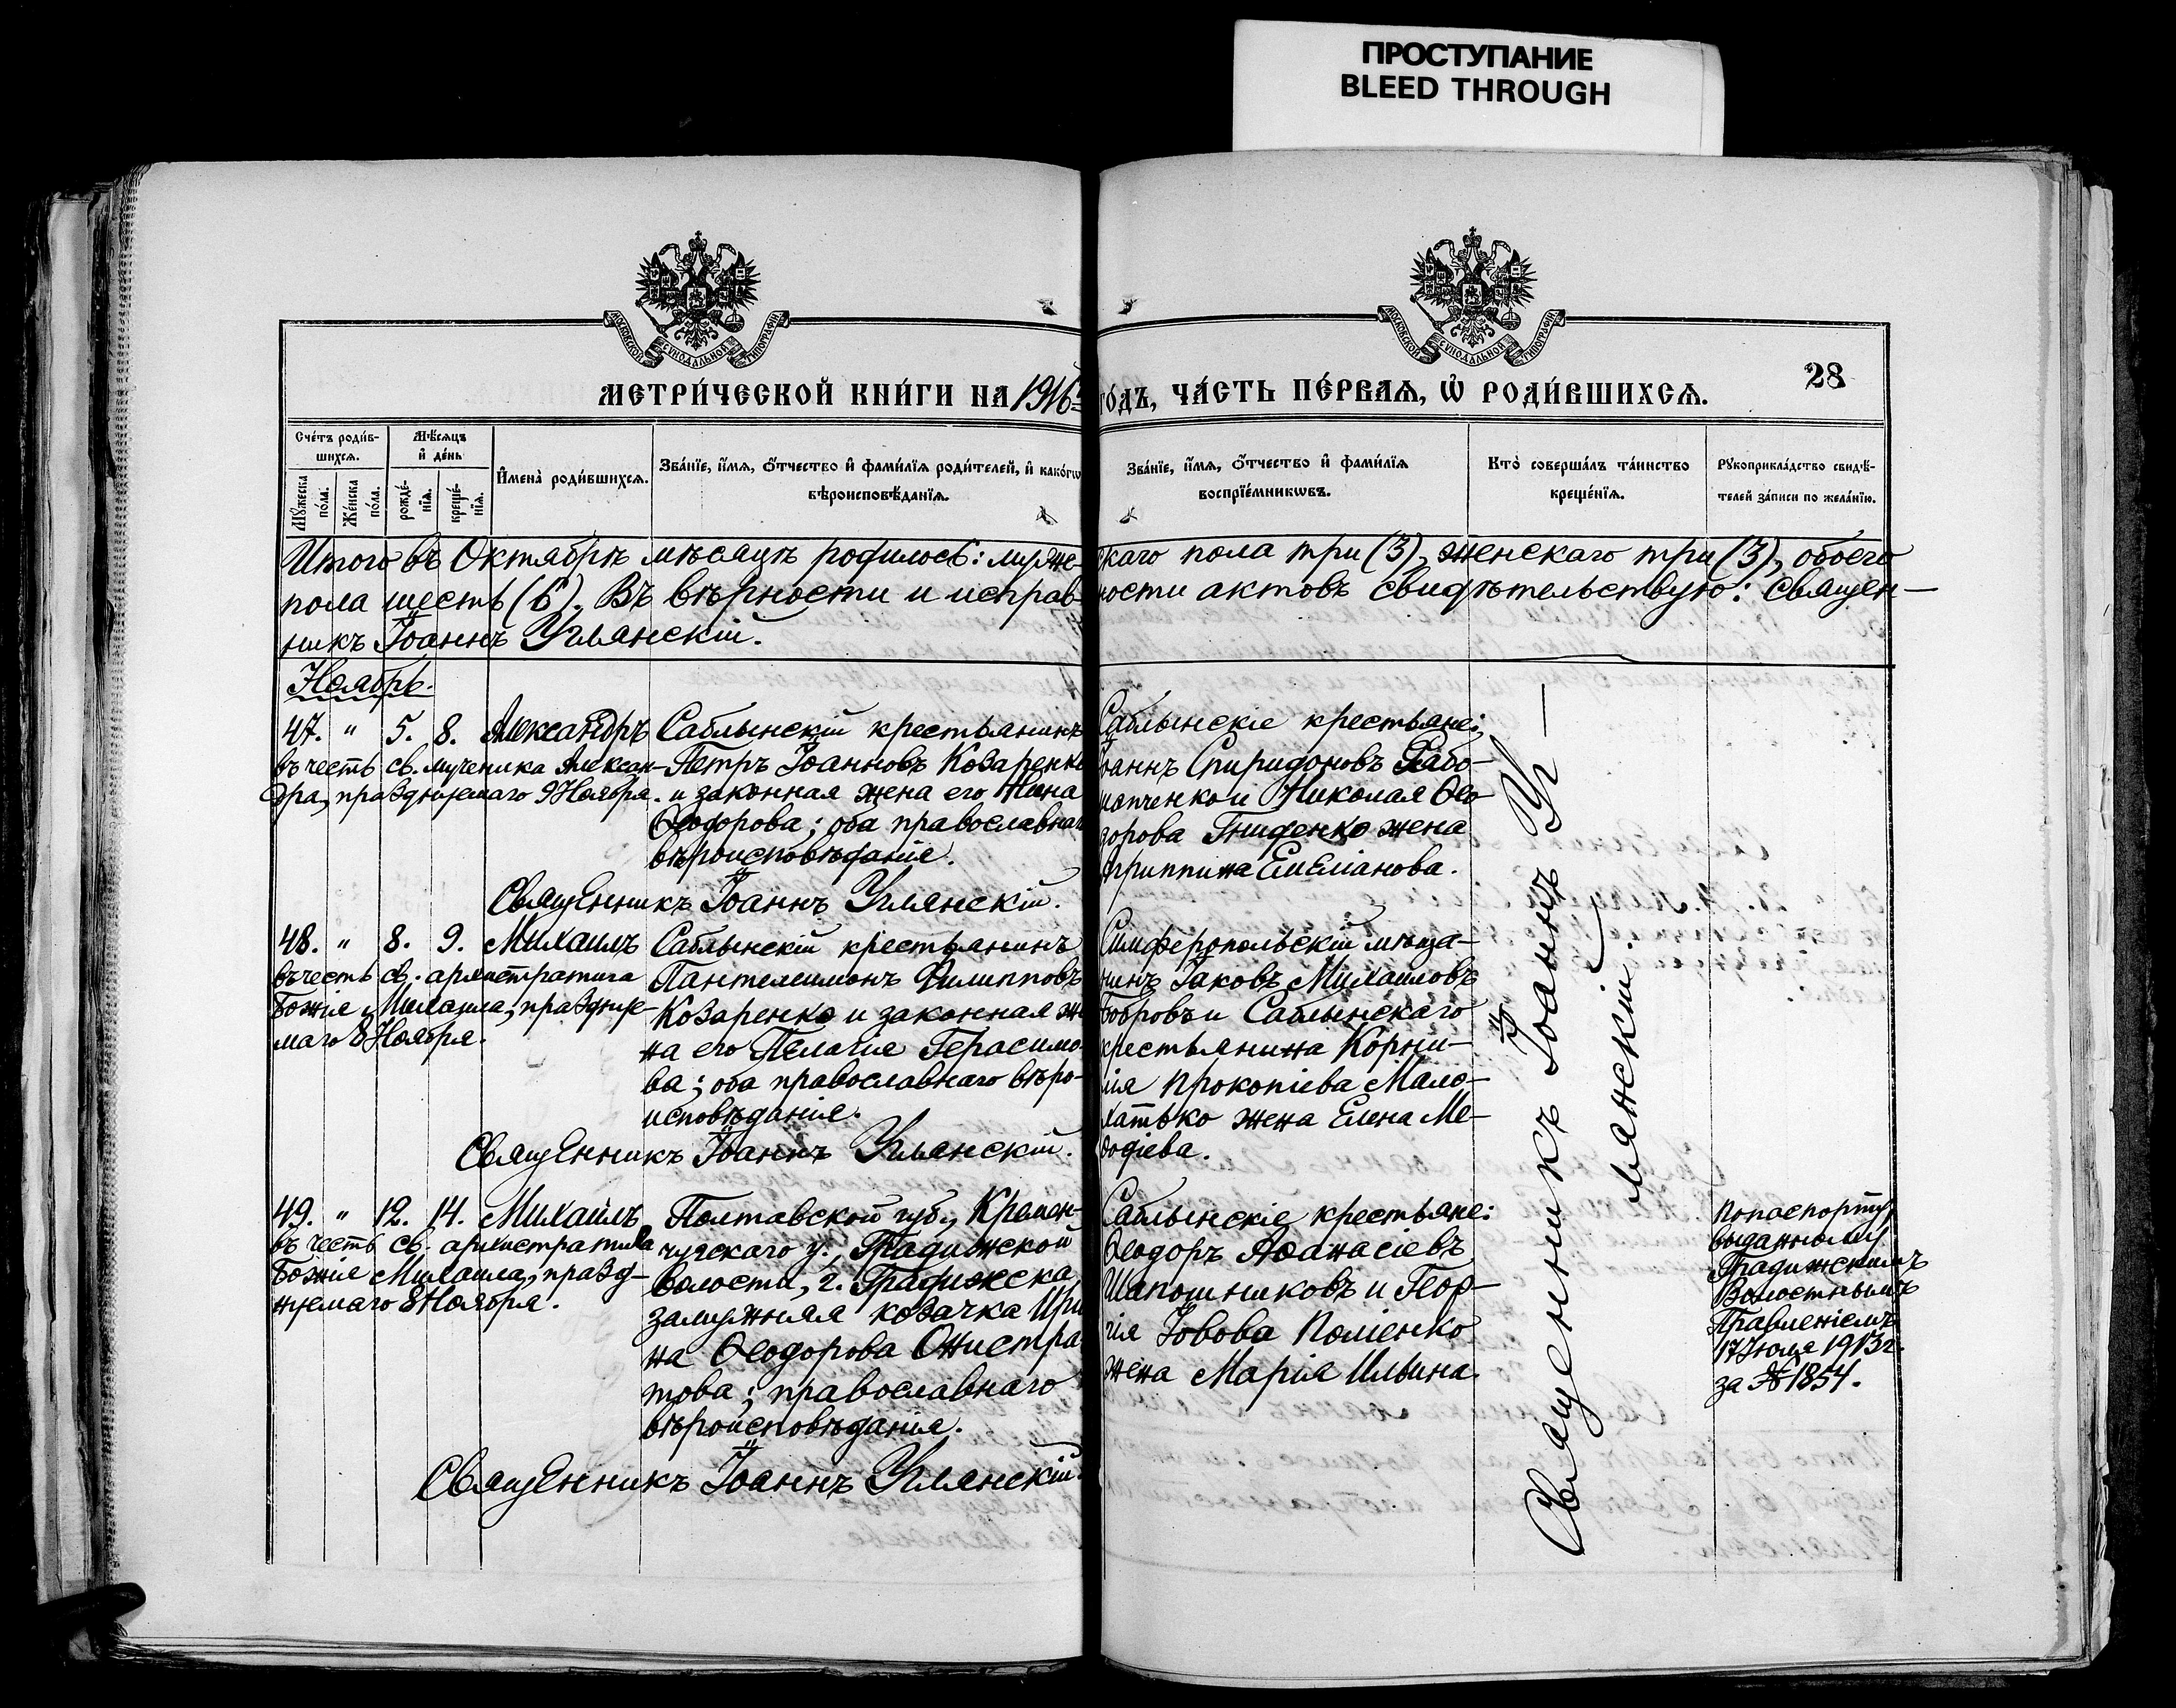 ПРОСТУПАНИЕ
BLEED THROUGH
МОСКОВСКОЙ СѴНОДАЛЬНОЙ ТИПОГРАФІИ
МОСКОВСКОЙ СѴНОДАЛЬНОЙ ТИПОГРАФІИ
28
МЕТРИ́ЧЕСКОЙ КНИ́ГИ НА 1916 ГО́ДЪ, ЧА́СТЬ ПЕ́РВАѦ, Ѡ҆ РОДИ́ВШИХСѦ.
Сче́тъ роди́в-
шихсѧ.
Мѣ́сѧцъ
и҆ де́нь
Мꙋ́жеска
по́ла.
Же́нска
по́ла.
рожде́-
нїѧ.
креще́-
нїѧ.
И҆мена̀ роди́вшихсѧ.
Зва́нїе, и҆́мѧ, ѻ҆́тчество и҆ фами́лїѧ роди́телей, и҆ како́гѡ
вѣроисповѣ́данїѧ.
Зва́нїе, и҆́мѧ, ѻ҆́тчество и҆ фами́лїѧ
воспрїе́мникѡвъ.
Кто̀ соверша́лъ та́инство
креще́нїѧ.
Рꙋкоприкла́дство свидѣ́-
телей за́писи по жела́нїю.
Итого въ Октябрѣ мѣсяцѣ родилось: муже-скаго пола три (3), женскаго три (3), обоего
пола шесть (6). Въ вѣрности и исправ-ности актовъ свидѣтельствую: Священ-
никъ Іоаннъ Углянскій.
Ноябрь.
47. " 5. 8. Александръ
въ честь св. мученика Алексан-
дра, празднуемаго 9 Ноября.
Саблынскій крестьянинъ
Петръ Іоанновъ Козаренко
и законная жена его Анна
Ѳеодорова; оба православнаго
вѣроисповѣданія.
Саблынскіе крестьяне:
Іоаннъ Спиридоновъ
и Николая Ѳео-
дорова Гниденко жена
Агриппина Емеліанова.
Священникъ Іоаннъ Углянскій.
48. " 8. 9. Михаилъ
въ честь св. архистратига
Божія Михаила, праздну-
емаго 8 Ноября.
Саблынскій крестьянинъ
Пантелеимонъ Филипповъ
Козаренко и законная же-
на его Пелагія Герасимо-
ва; оба православнаго вѣро-
исповѣданія.
Симферопольскій мѣща-
нинъ Іаковъ Михаиловъ
Бобровъ и Саблынскаго
крестьянина Корни-
лія Прокопіева Мало-
хатько жена Елена Ме-
ѳодіева.
Священникъ Іоаннъ Углянскій.
49. " 12. 14. Михаилъ
въ честь св. архистратига
Божія Михаила, празд-
нуемаго 8 Ноября.
Полтавской губ., Кремен-
чугскаго у., Градижской
волости, г. Градижска
замужняя козачка Ири-
на Ѳеодорова Онистра-
това; православнаго
вѣроисповѣданія.
Саблынскіе крестьяне:
Ѳеодоръ Аѳанасіевъ
Шапошниковъ и Геор-
гія Іовова Поліенко
жена Марія Ильина.
По паспорту,
выданному
Градижскимъ
Волостнымъ
Правленіемъ
17 Іюля 1913 г.
за № 1854.
Священникъ Іоаннъ Углянскій.
Священникъ Іоаннъ Уг-
лянскій.